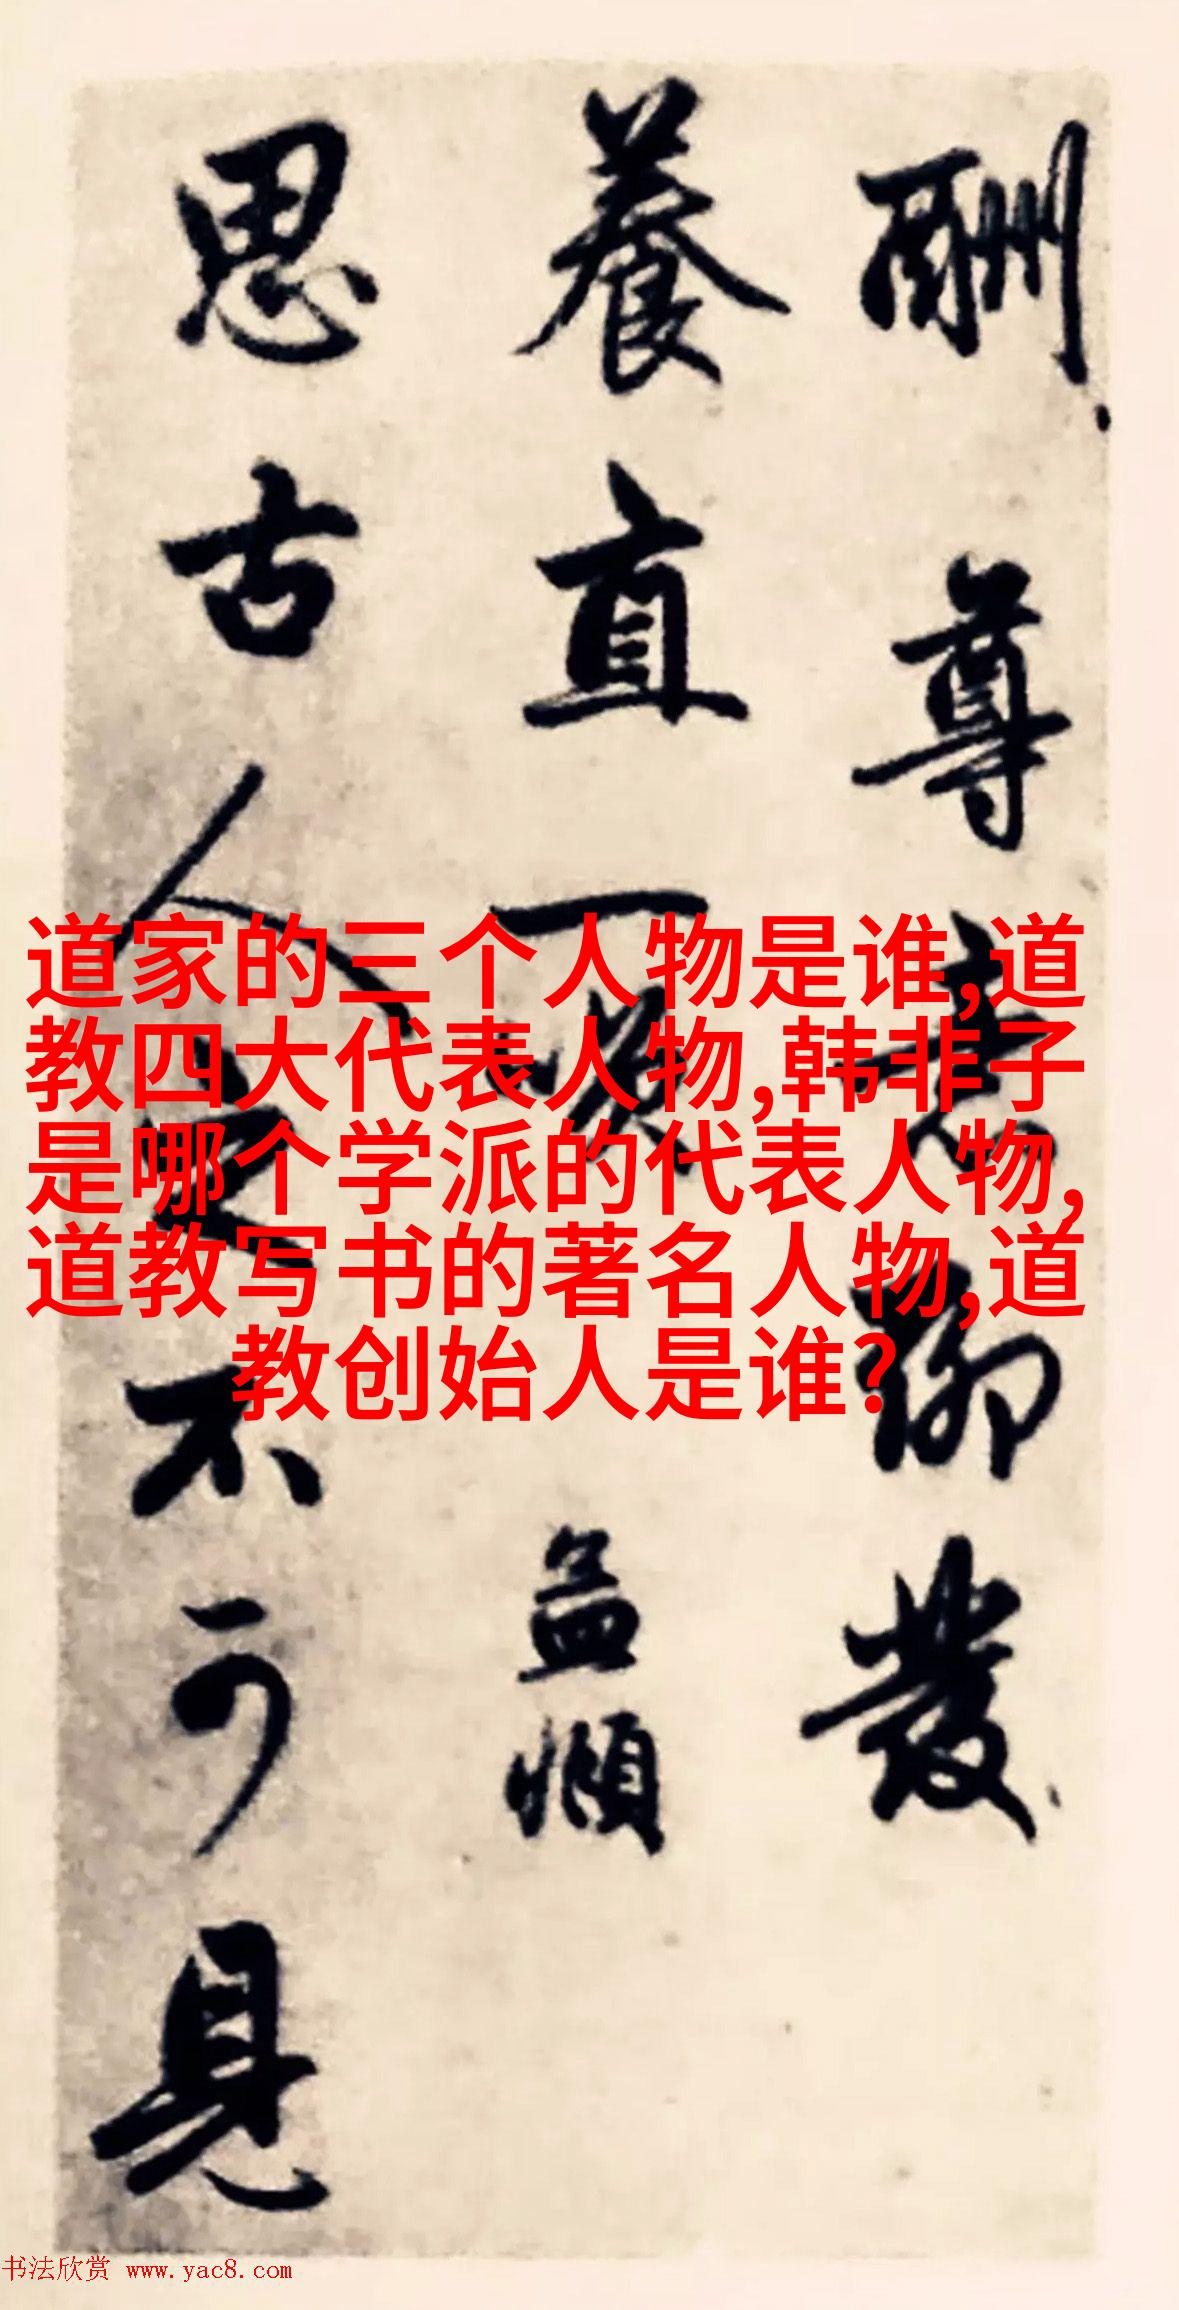 酬尊意聊發
養直一哭
孟頫
思古人之不可見
道家的三个人物是谁,道
教四大代表人物,韩非子
是哪个学派的代表人物,
道教写书的著名人物,道
教创始人是谁?
书法欣赏 www.yac8.com